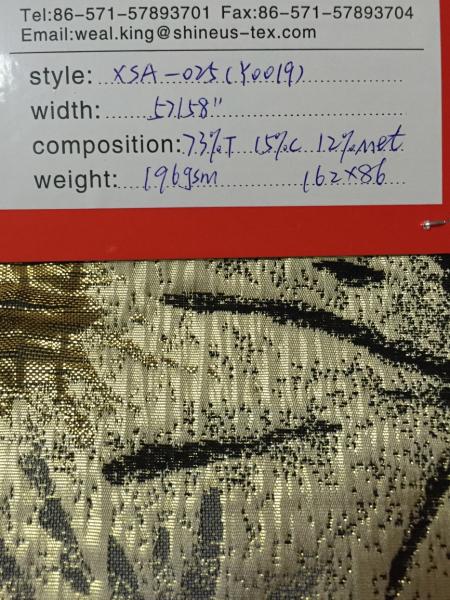 Tel:86-571-57893701 Fax:86-571-57893704
Email:weal.king@shineus-tex.com
style: XSA-025(Y0019)
width: 57/58"
composition: 73%T 15%C 12%met
weight: 196gsm 162×86